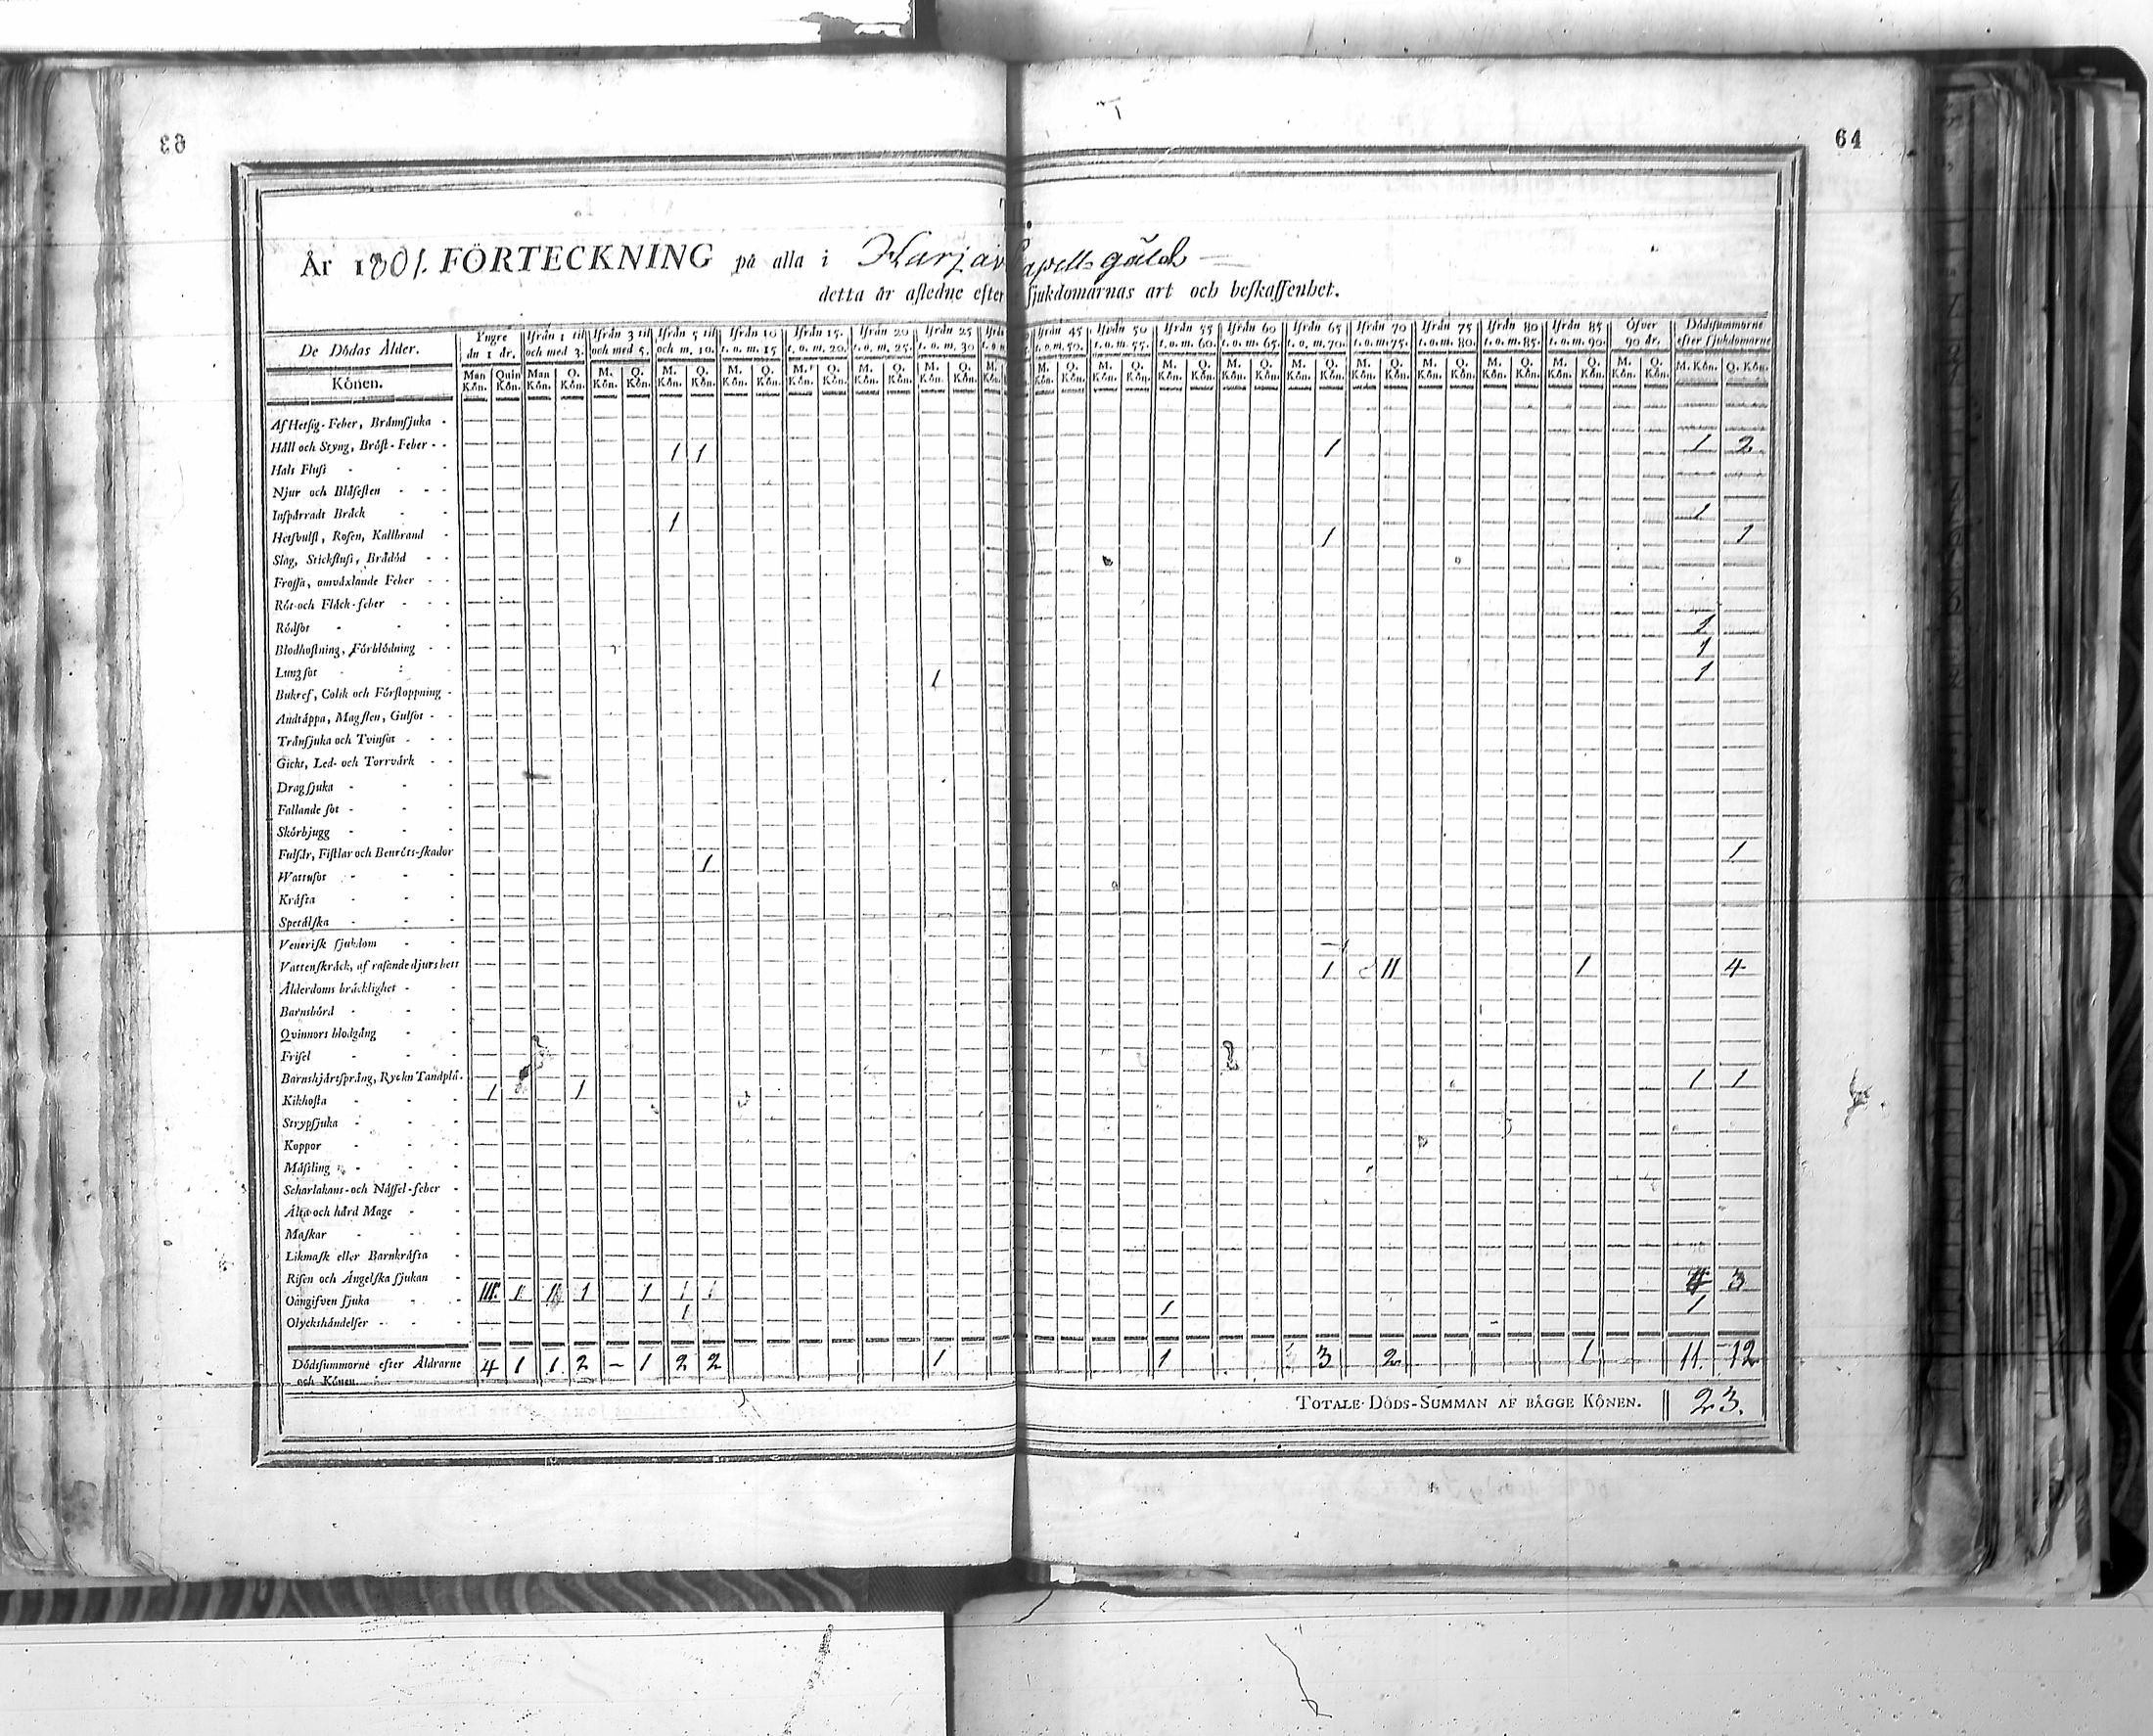 63
64
År 1801. FÖRTECKNING på alla i Harjav Capells gäld
detta år afledne efter sjukdomarnas art och beskaffenhet.
De Dödas Ålder. Yngre än 1 år. Ifrån 1 til och med 3. Ifrån 3 til och med 5. Ifrån 5 til och m. 10. Ifrån 10 t. o. m. 15 Ifrån 15. t. o. m. 20. Ifrån 20 t. o. m. 25. Ifrån 25 t. o. m. 30 Ifrån 45 t. o. m. 50. Ifrån 50 t. o. m. 55. Ifrån 55 t. o. m. 60. Ifrån 60 t. o. m. 65. Ifrån 65 t. o. m. 70. Ifrån 70 t. o. m. 75. Ifrån 75 t. o. m. 80. Ifrån 80 t. o. m. 85. Ifrån 85 t. o. m. 90. Öfver 90 år. Dödssummorne efter sjukdomarne
Könen. Man Kön. Quin Kön. Man Kön. Q. Kön. M. Kön. Q. Kön. M. Kön. Q. Kön. M. Kön. Q. Kön. M. Kön. Q. Kön. M. Kön. Q. Kön. M. Kön. Q. Kön. M. M. Kön. Q. Kön. M. Kön. Q. Kön. M. Kön. Q. Kön. M. Kön. Q. Kön. M. Kön. Q. Kön. M. Kön. Q. Kön. M. Kön. Q. Kön. M. Kön. Q. Kön. M. Kön. Q. Kön. M. Kön. Q. Kön. M. Kön. Q. Kön.
Af Hetsig-Feber, Brännsjuka
Håll och Styng, Bröst-Feber 1 1 1 1 2
Hals Fluss
Njur och Blåsesten
Inspärradt Bråck 1 1
Hetsvulst, Rosen, Kallbrand 1 1
Slag, Stickfluss, Brådöd
Frossa, omväxlande Feber
Röt-och Fläck-feber
Rödsot 1
Blodhostning, Förblödning 1
Lungsot 1 1
Bukref, Colik och Förstoppning
Andtäppa, Magsten, Gulsot
Trånsjuka och Tvinsot
Gicht, Led- och Torrvärk
Dragsjuka
Fallande sot
Skörbjugg
Fulsår, Fistlar och Benröts-skador 1 1
Wattusot
Kräfta
Spetälska
Venerisk sjukdom
Vattenskräck, af rasande djurs bett 1 11 1 4
Ålderdoms bräcklighet
Barnsbörd
Qvinnors blodgång
Frisel
Barnshjärtspräng, Ryckn Tandplå. 1 1
Kikhosta 1 1
Strypsjuka
Koppor
Mäsling
Scharlakans-och Nässel-feber
Älta och hård Mage
Maskar
Likmask eller Barnkräfta
Risen och Ängelska sjukan
Oangifven sjuka 1 1 1 1 3
Olyckshändelser 1 1 1
Dödssummorne efter Åldrarne och Könen. 4 1 1 2 – 1 2 2 1 1 3 2 1 11. 12
TOTALE DÖDS-SUMMAN AF BÄGGE KÖNEN. 23.